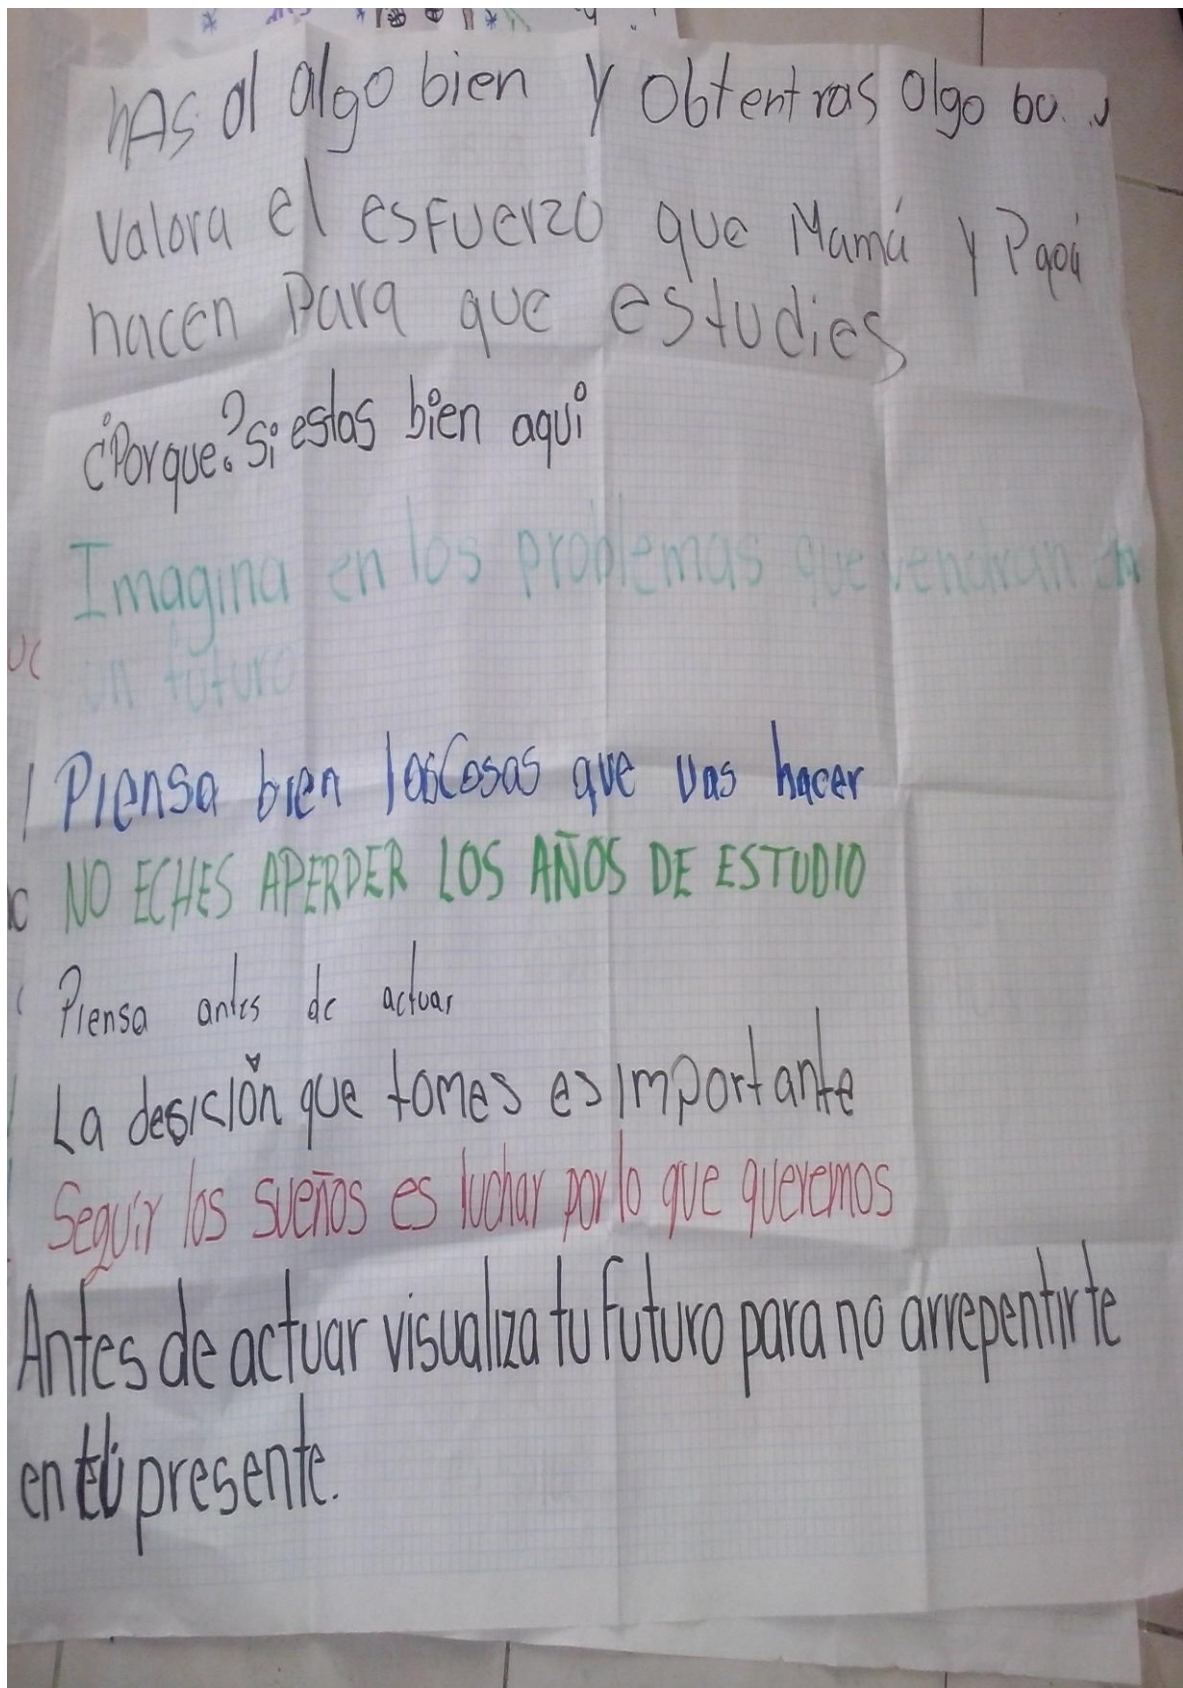 hAs al algo bien y Obtentras algo
Valora el esfuerzo que Mamá y Papá
hacen Para que estudies
¿Porque? Si estas bien aqui
Imagina en los problemas que vendran en
un futuro
Piensa bien las Cosas que vas hacer
NO ECHES APERDER LOS AÑOS DE ESTUDIO
Piensa antes de actuar
La desición que tomes es importante
Seguir los sueños es luchar por lo que queremos
Antes de actuar visualiza tu futuro para no arrepentirte
en tu presente.